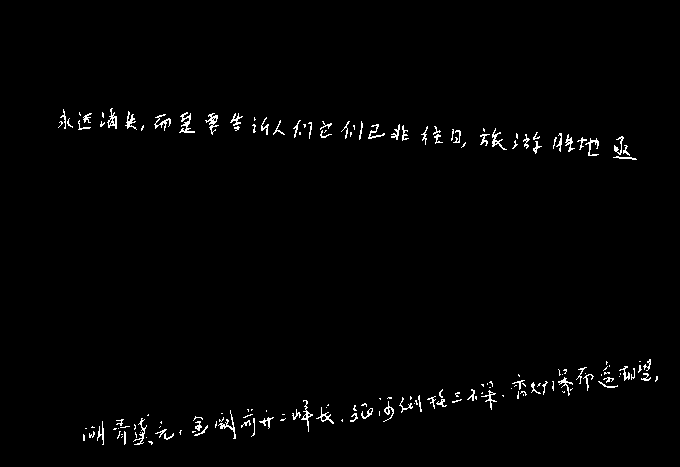 永远消失,而是要告诉人们它们已非往日,旅游胜地亟
湖青黛光,金阙前开二峰长,银河倒挂三石梁,香炉瀑布遥相望,